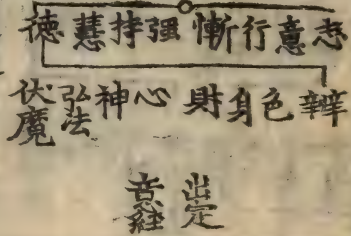 志意行慚强持慧德
辯色身財心神弘法伏魔
出定
意經